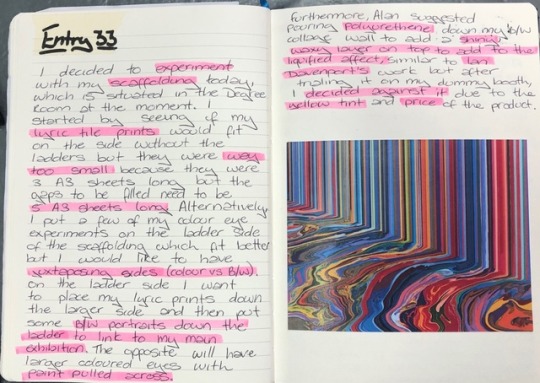 Entry 33
I decided to experiment
with my scaffolding today,
which is situated in the Degree
Room at the moment. I
started by seeing if my
lyric tile prints would fit
on the side without the
ladders but they were way
too small because they were
3 A3 sheets long but the
gaps to be filled need to be
5 A3 sheets long. Alternatively,
I put a few of my colour eye
experiments on the ladder side
of the scaffolding which fit better
but I would like to have
juxtaposing sides (colour vs B/W).
On the ladder side I want
to place my lyric prints down
the larger side and then put
some B/W portraits down the
ladder to link to my main
exhibition. The opposite will have
larger coloured eyes with
paint pulled across.
Furthermore, Alan suggested
pouring polyurethene down my B/W
collage wall to add a shiny,
waxy layer on top to add to the
liquified effect, similar to Ian
Davenport's work but after
trialing it on my dummy booth,
I decided against it due to the
yellow tint and price of the product.